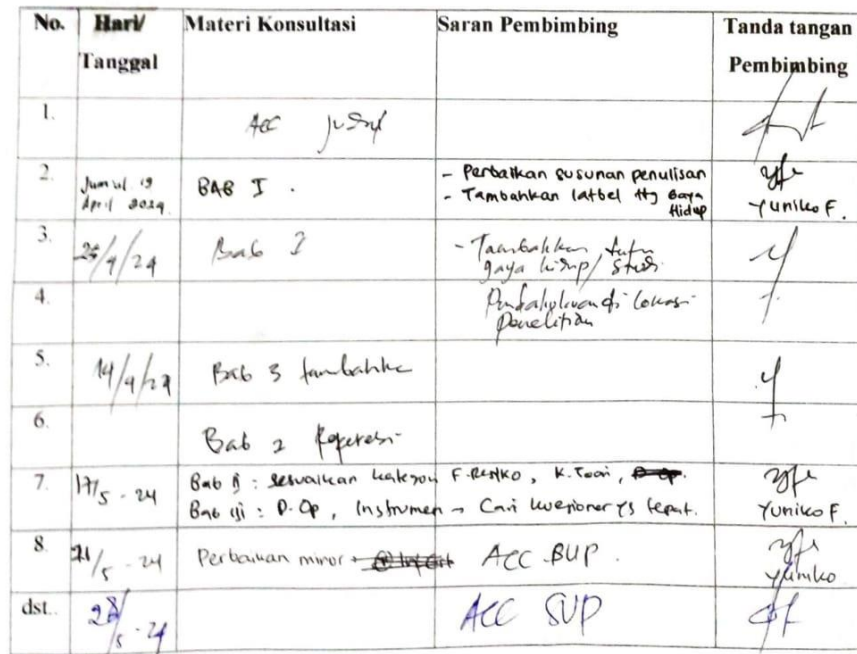 No. Hari/ Materi Konsultasi Saran Pembimbing Tanda tangan
Tanggal Pembimbing
1. Acc judul
2. Jum'at 19 BAB I. - Perbaikan susunan penulisan
April 2024. - Tambahkan latbel ttg Gaya Hidup Yuniko F.
3. 26/4/24 Bab I - Tambahkan
gaya hidup/ Studi
4. Pendahuluan di lokasi
penelitian
5. Bab 3 tambahkan
6. Bab 2 Referensi
7. 17/5 - 24 Bab II : sesuaikan kategori F.Resiko, K.Teori,
Bab III : D.Op, Instrumen → Cari kuesioner yg tepat. Yuniko F.
8. 21/5 - 24 Perbaikan minor ACC BUP. Yuniko
dst.. 28/5 - 24 ACC SUP